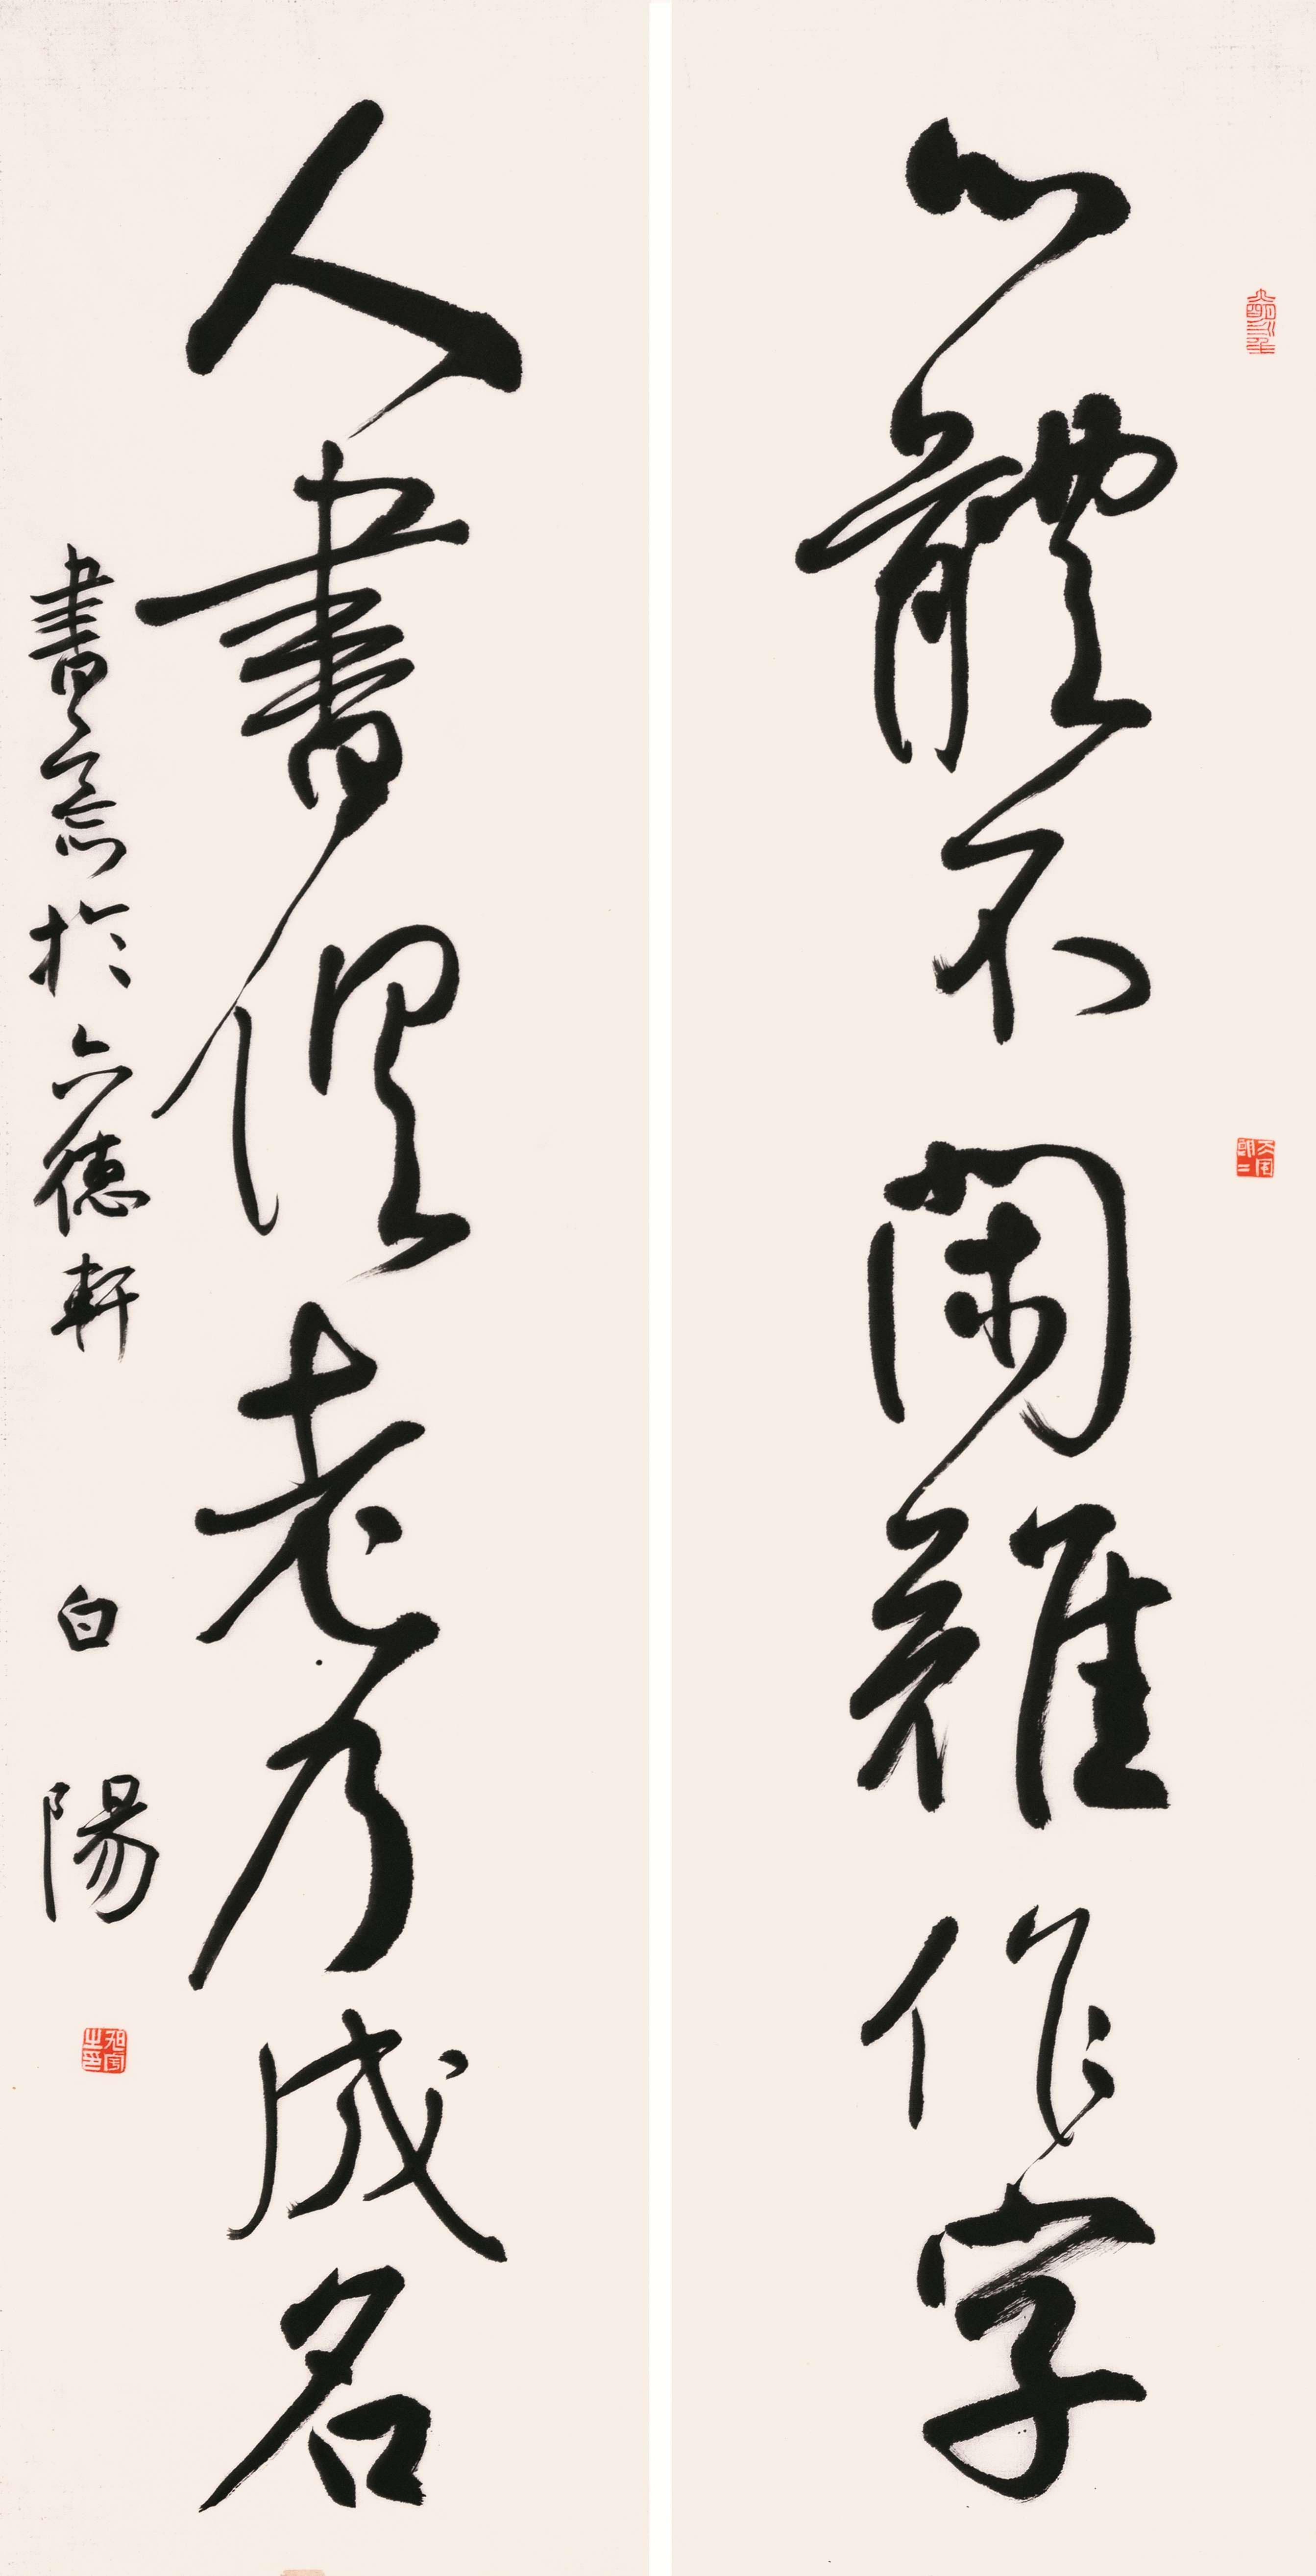 心體不閑難作字
人書俱老乃成名
書意於六德軒
白陽